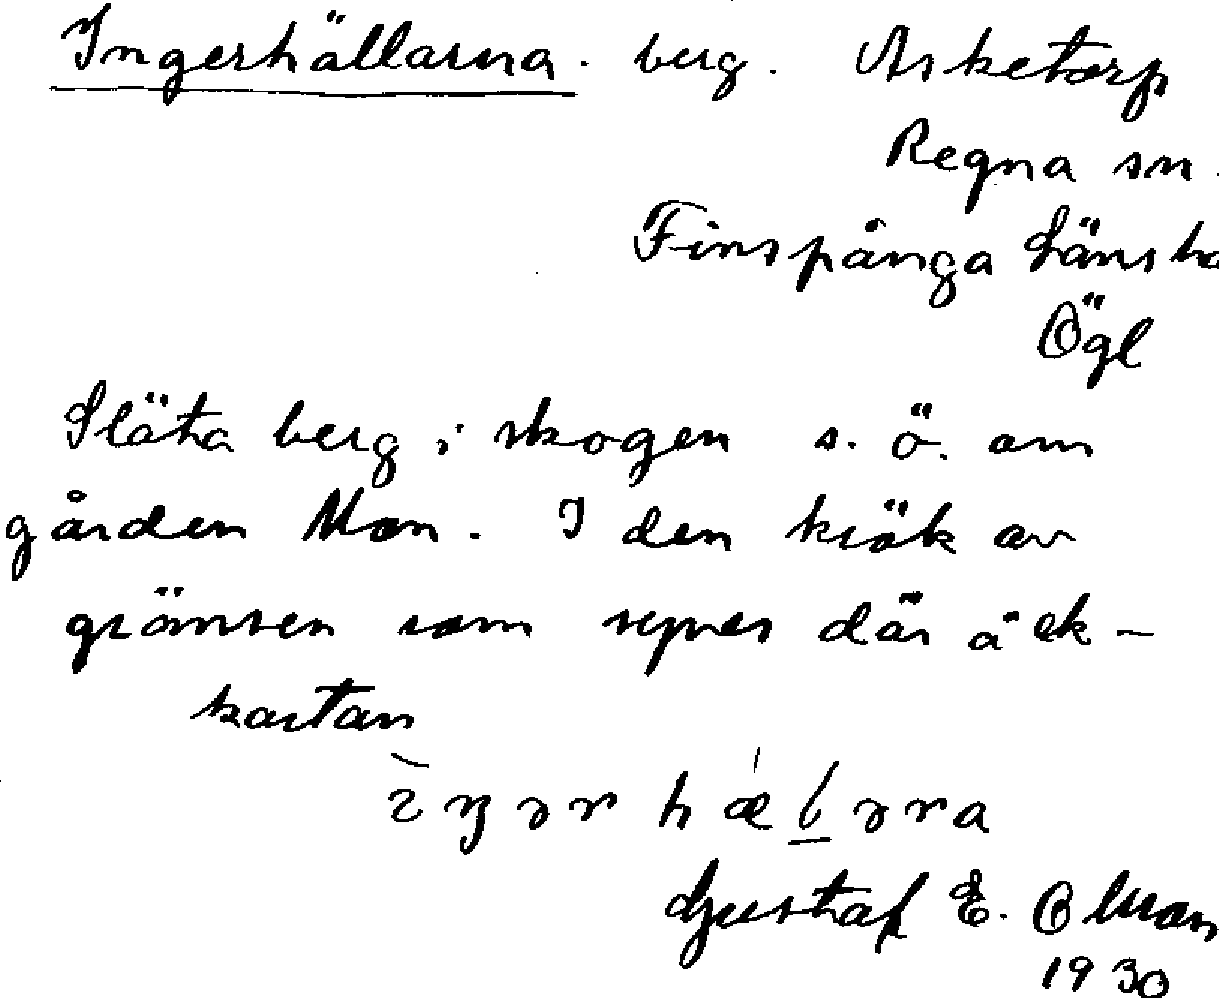 Ingerhällarna. berg. Asketorp
Regna sn.
Finspånga länsha
Ögl
Släta berg i skogen s. ö. om
gården Mon. I den krök av
gränsen som synes där å ek-
kartan
Gustaf E. Olsson
1930